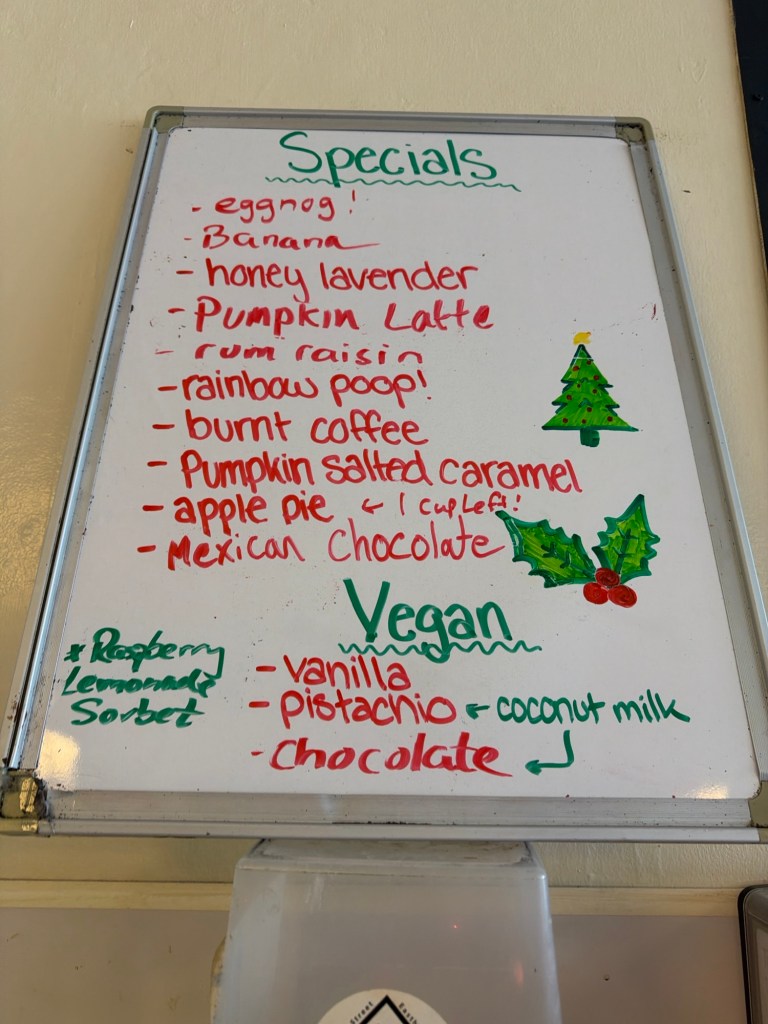 Specials
- eggnog!
- Banana
- honey lavender
- Pumpkin Latte
- rum raisin
- rainbow poop!
- burnt coffee
- Pumpkin salted caramel
- apple pie ← 1 cup Left!
- Mexican Chocolate
Vegan
* Raspberry
Lemonade
Sorbet
- vanilla
- pistachio ← coconut milk
- Chocolate
Street